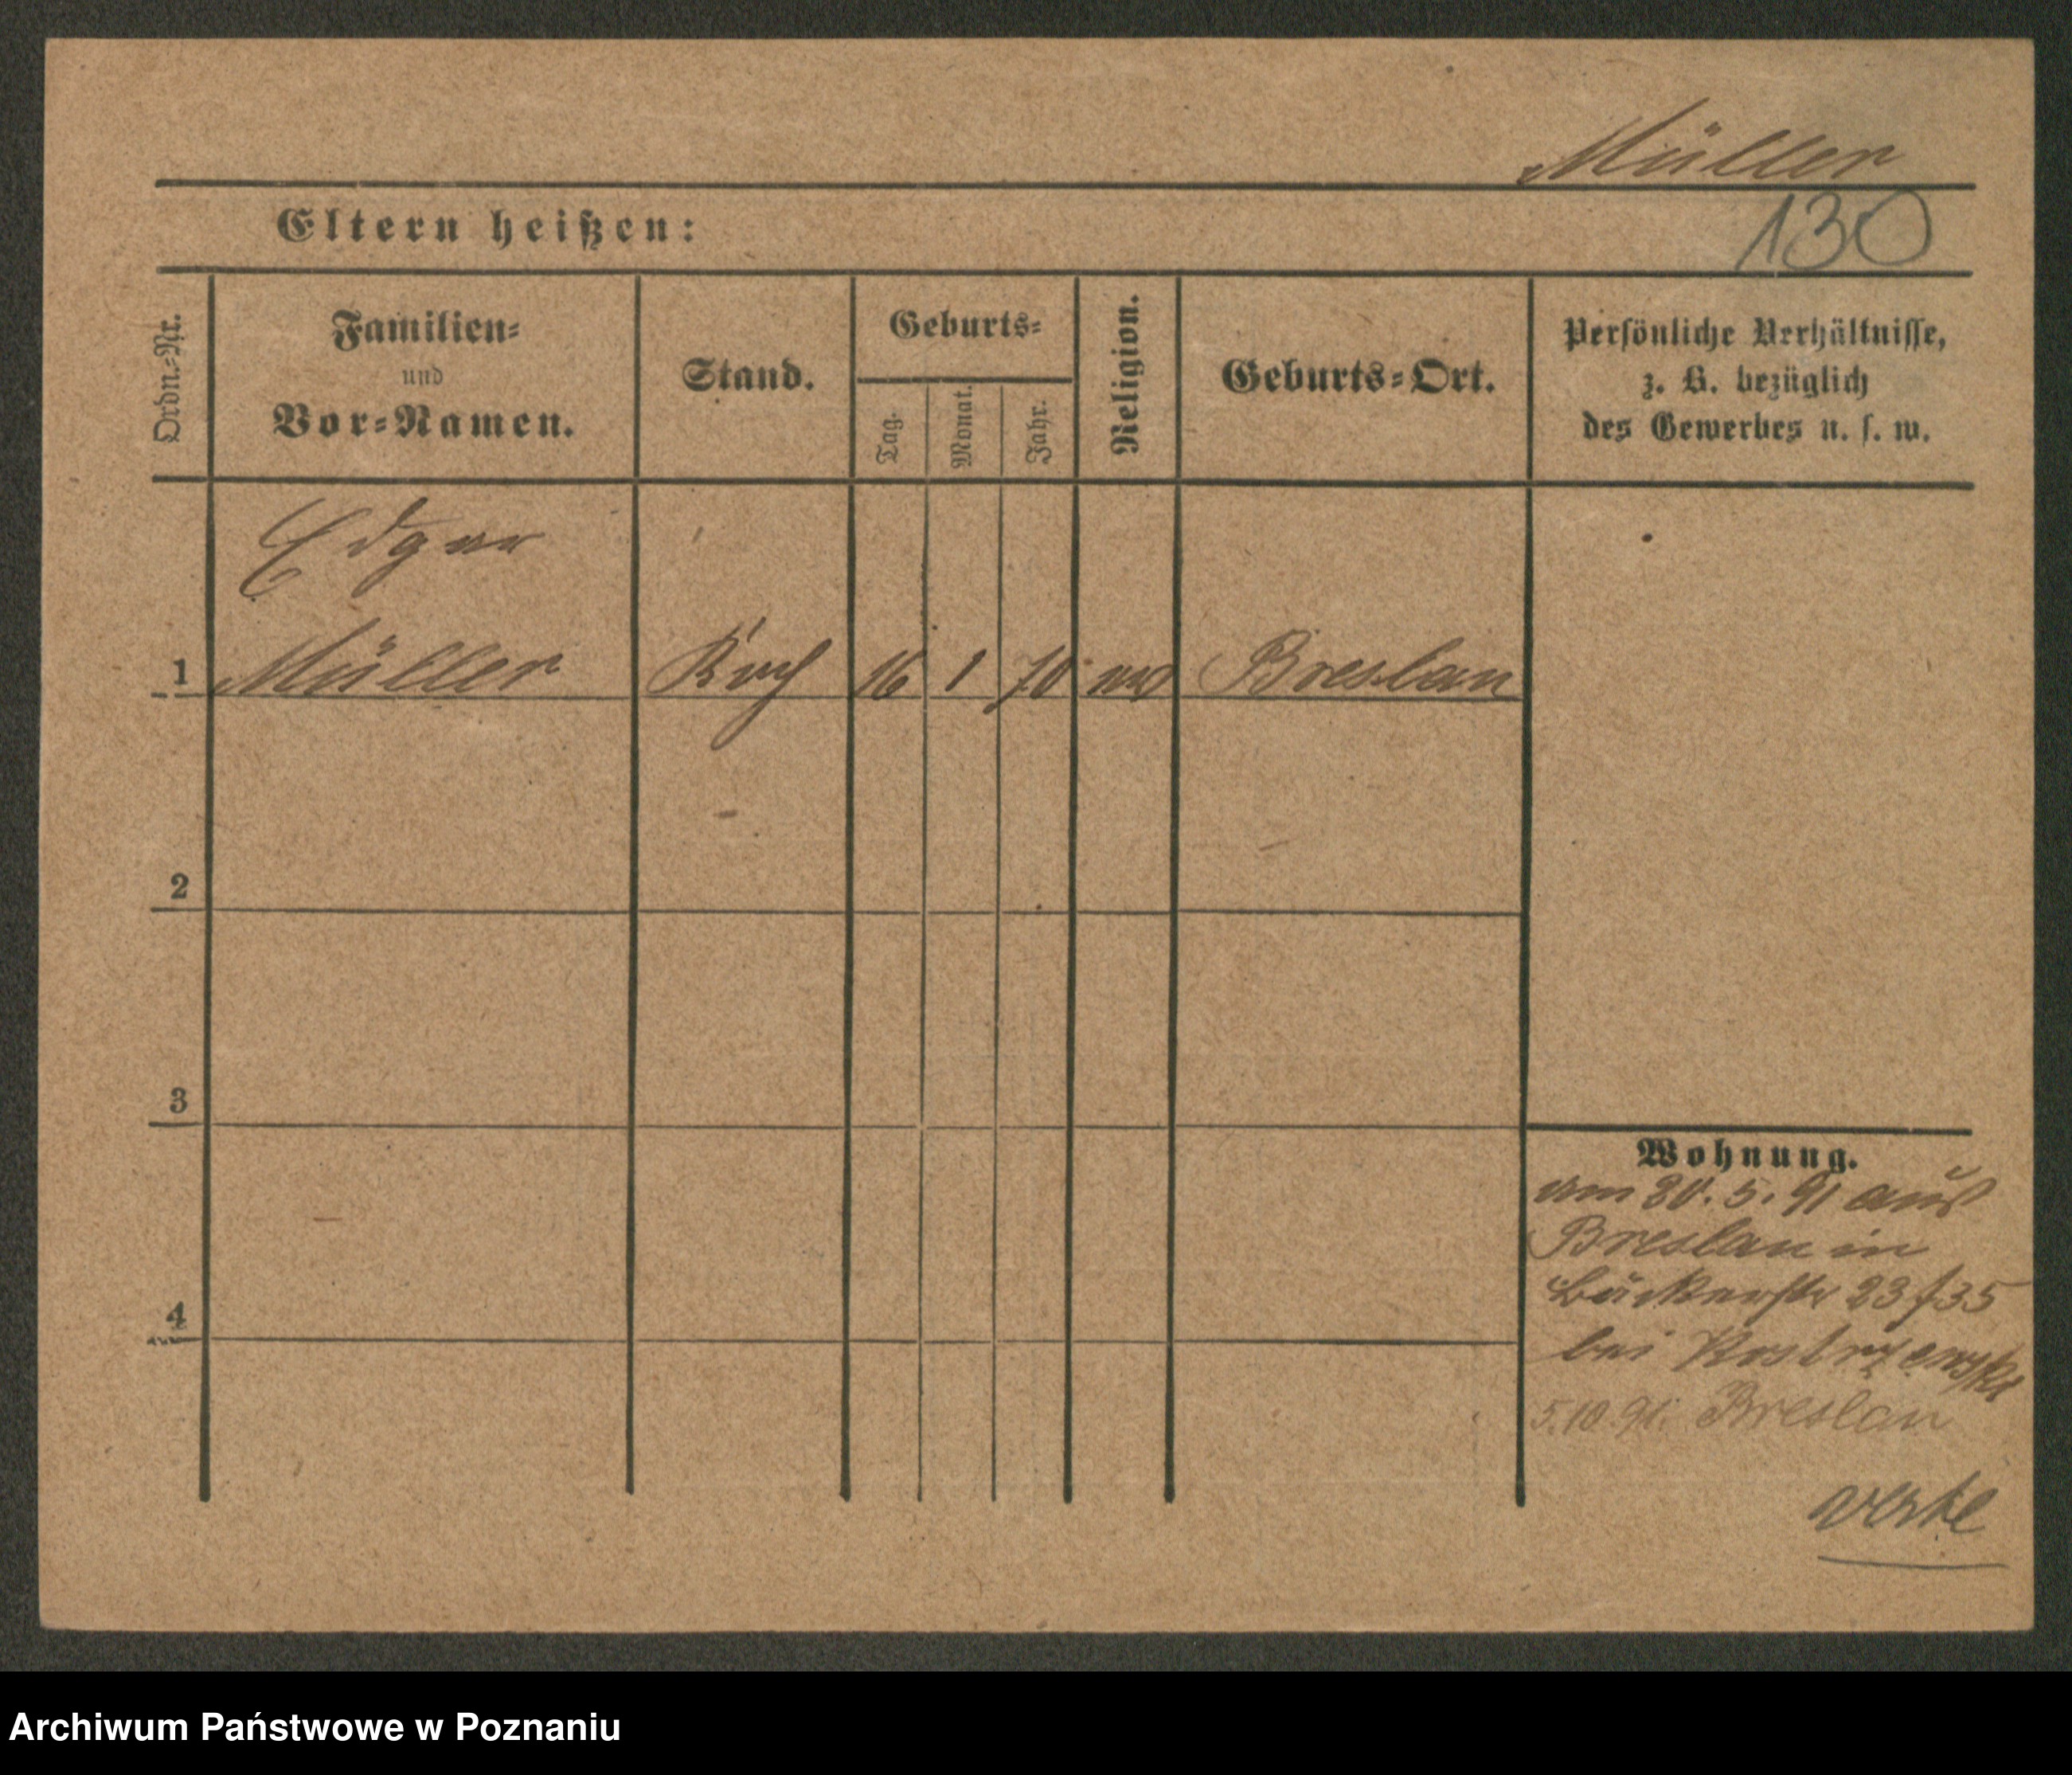 Müller
Eltern heißen:
130
Ordn.=Nr.
Familien=
und
Vor=Namen.
Stand.
Geburts=
Tag.
Monat.
Jahr.
Religion.
Geburts=Ort.
Persönliche Verhältnisse,
z. B. bezüglich
des Gewerbes u. s. w.
Edgar
1 Müller Koch 16 1 70 Breslau
2
3
4
Wohnung.
am 5. 91 aus
Breslau in
23/35
bei
5.10.91. Breslau
Archiwum Państwowe w Poznaniu